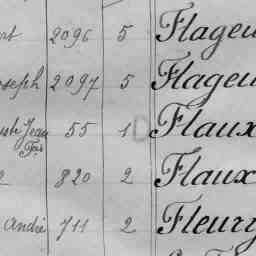 rt 2096 5 Flageu
oseph 2097 5 Flageu
uste Jean 55 1 D Flaux
Fçs
820 2 Flaux
André 711 2 Fleury